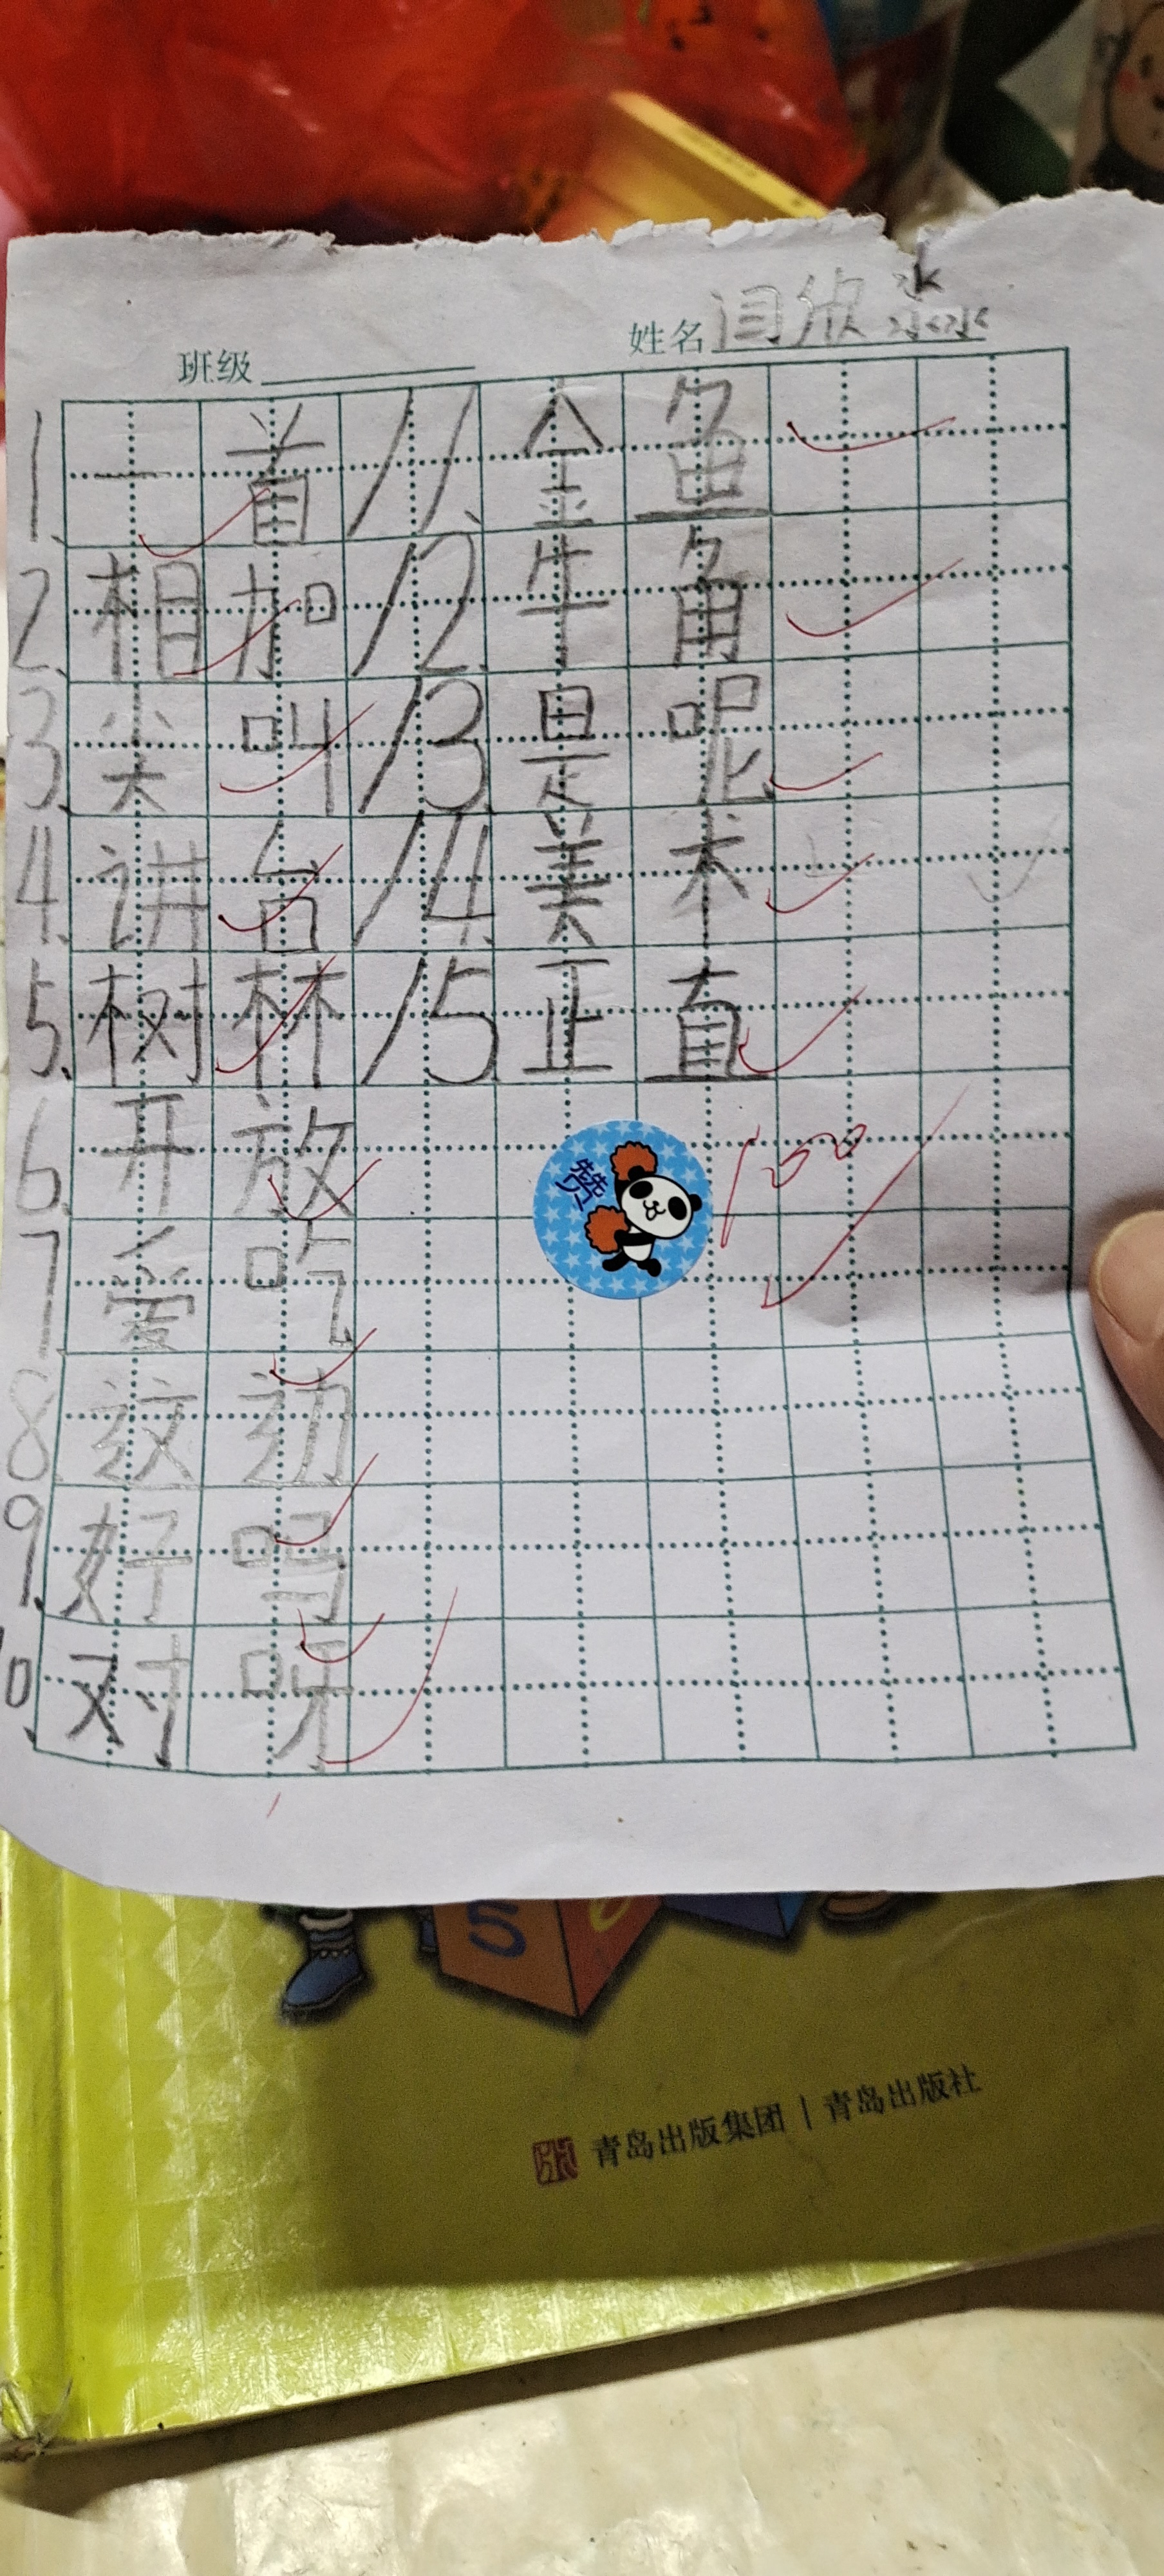 班级 姓名 闫欣淼
1. 一首 11. 金鱼
2. 相加 12. 牛角
3. 尖叫 13. 是呢
4. 讲台 14. 美术
5. 树林 15. 正直
6. 开放
赞 100
7. 爱吃
8. 这边
9. 好吗
10. 对呀
S
青岛出版集团 | 青岛出版社